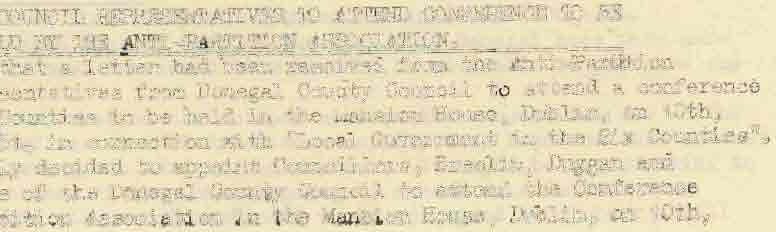 COUNCIL REPRESENTATIVES TO ATTEND CONFERENCE TO BE
LD BY THE ANTI-PARTITION ASSOCIATION.
that a letter had been received from the Anti-Partition
sentatives from Donegal County Council to attend a conference
Counties to be held in the Mansion House, Dublin, on 10th,
in connection with "Local Government in the Six Counties",
ly decided to appoint Councillors, Breslin, Duggan and
e of the Donegal County Council to attend the Conference
tition Association in the Mansion House, Dublin, on 10th,